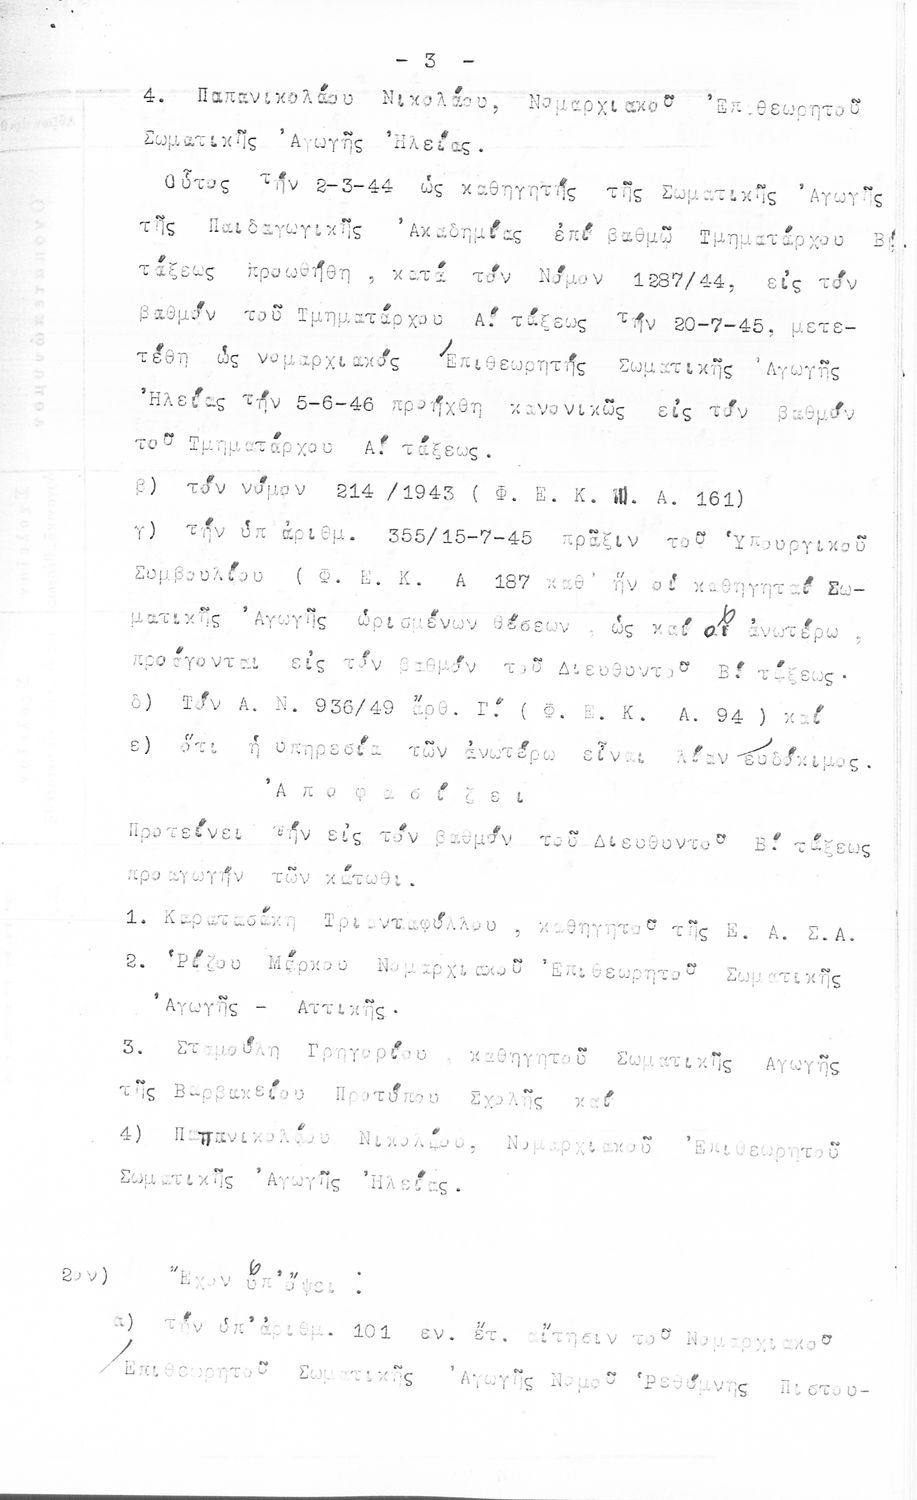 - 3 -
4. Παπανικολάου Νικολάου, Νομαρχιακοῦ Ἐπιθεωρητοῦ
Σωματικῆς Ἀγωγῆς Ἠλείας.
Οὗτος τήν 2-3-44 ὡς καθηγητής τῆς Σωματικῆς Ἀγωγῆς
τῆς Παιδαγωγικῆς Ἀκαδημίας ἐπί βαθμῷ Τμηματάρχου Β΄.
τάξεως προωθήθη, κατά τόν Νόμον 1287/44, εἰς τόν
βαθμόν τοῦ Τμηματάρχου Α΄ τάξεως τήν 20-7-45, μετε-
τέθη ὡς νομαρχιακός Ἐπιθεωρητής Σωματικῆς Ἀγωγῆς
Ἠλείας τήν 5-6-46 προήχθη κανονικῶς εἰς τόν βαθμόν
τοῦ Τμηματάρχου Α΄ τάξεως.
β) τόν νόμον 214 /1943 ( Φ. Ε. Κ. Α. 161)
γ) τήν ὑπ ἀριθμ. 355/15-7-45 πρᾶξιν τοῦ Ὑπουργικοῦ
Συμβουλίου ( Φ. Ε. Κ. Α 187 καθ' ἥν οἱ καθηγηταί Σω-
ματικῆς Ἀγωγῆς ὡρισμένων θέσεων, ὡς καί οἱ ἀνωτέρω,
προάγονται εἰς τόν βαθμόν τοῦ Διευθυντοῦ Β΄ τάξεως.
δ) Τόν Α. Ν. 936/49 ἄρθ. Γ΄ ( Φ. Ε. Κ. Α. 94 ) καί
ε) ὅτι ἡ ὑπηρεσία τῶν ἀνωτέρω εἶναι λίαν εὐδόκιμος.
Ἀ π ο φ α σ ί ζ ε ι
Προτείνει τήν εἰς τόν βαθμόν τοῦ Διευθυντοῦ Β΄ τάξεως
προαγωγήν τῶν κάτωθι.
1. Καρατασάκη Τριανταφύλλου, καθηγητοῦ τῆς Ε. Α. Σ.Α.
2. Ῥίζου Μάρκου Νομαρχιακοῦ Ἐπιθεωρητοῦ Σωματικῆς
Ἀγωγῆς - Αττικῆς.
3. Σταμούλη Γρηγορίου, καθηγητοῦ Σωματικῆς Αγωγῆς
τῆς Βαρβακείου Προτύπου Σχολῆς καί
4) Παπανικολάου Νικολάου, Νομαρχιακοῦ Ἐπιθεωρητοῦ
Σωματικῆς Ἀγωγῆς Ἠλείας.
2ον) Ἔχον ὑπ' ὄψει :
α) τήν ὑπ' ἀριθμ. 101 εν. ἔτ. αἴτησιν τοῦ Νομαρχιακοῦ
Ἐπιθεωρητοῦ Σωματικῆς Ἀγωγῆς Νομοῦ Ῥεθύμνης Πιστου-